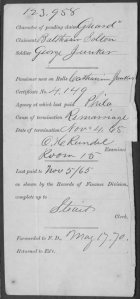 123,958
Character of pending claim, "Guard"
Claimant, Catharin
Soldier, George Junker
Pensioner now on Rolls, Catharin Junker
Certificate No. 4,149
Agency at which last paid, Phila
Cause of termination, Remarriage
Date of termination, Nov 4, 65
Room 15 Examiner
Last paid to Nov 5/65
as shown by the Records of Finance Division,
complete up to
Clerk.
Forwarded to P. D., May 17, 70.
Returned to Exr.